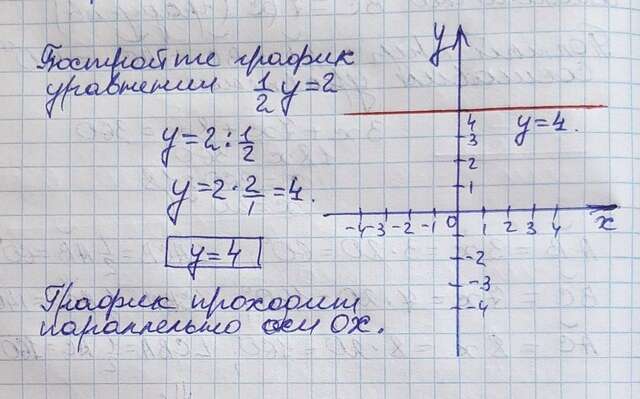 Постройте график
уравнении 1/2 y=2
y=2:1/2
y=2·2/1=4.
y=4
График проходит
параллельно оси Ox.
y
4
3
2
1
y=4.
-4 -3 -2 -1 0 1 2 3 4 x
-2
-3
-4